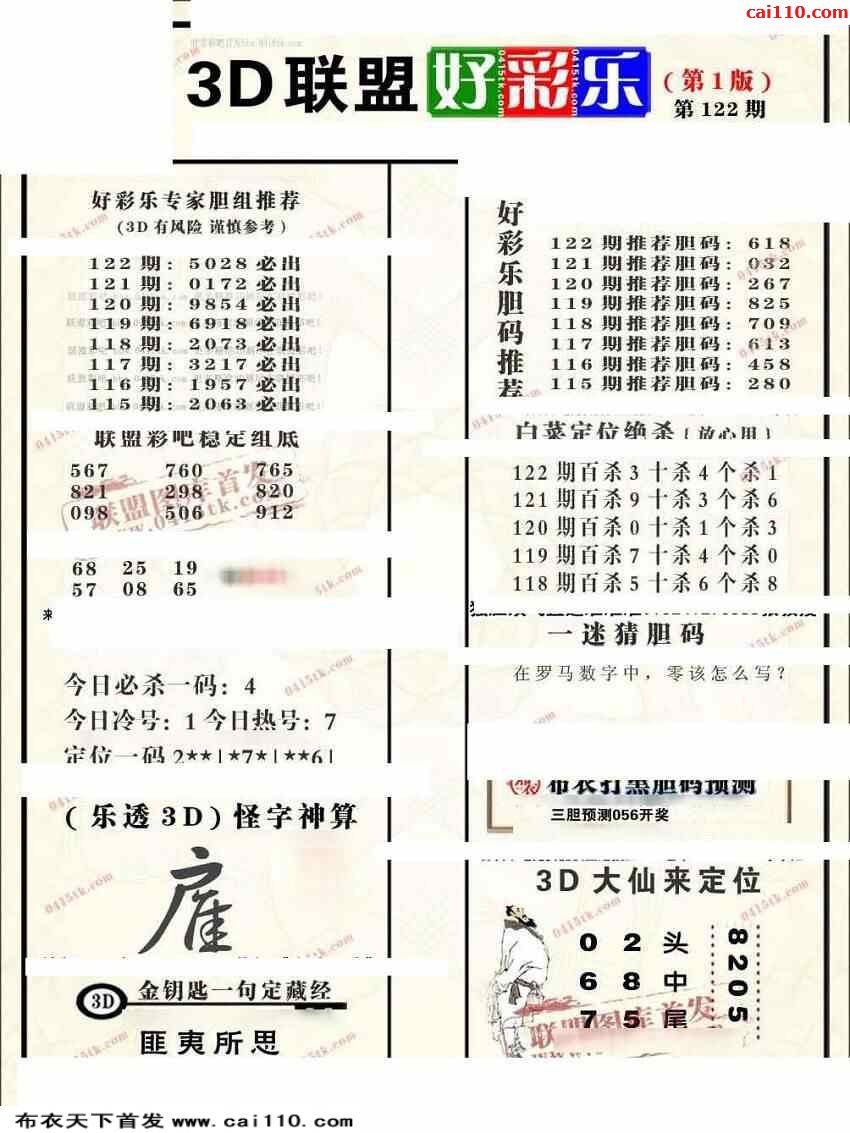 cai110.com
3D联盟好彩乐
(第1版)
第122期
好彩乐专家胆组推荐
(3D有风险 谨慎参考)
122期: 5028必出
121期: 0172必出
120期: 9854必出
119期: 6918必出
118期: 2073必出
117期: 3217必出
116期: 1957必出
115期: 2063必出
联盟彩吧稳定组底
567 760 765
821 298 820
098 506 912
68 25 19
57 08 65
今日必杀一码: 4
今日冷号: 1 今日热号: 7
定位一码 2**|*7*|**6|
(乐透3D) 怪字神算
3D 金钥匙一句定藏经
匪夷所思
好彩乐胆码推荐
122期推荐胆码: 618
121期推荐胆码: 032
120期推荐胆码: 267
119期推荐胆码: 825
118期推荐胆码: 709
117期推荐胆码: 613
116期推荐胆码: 458
115期推荐胆码: 280
白菜定位绝杀 (放心用)
122期百杀3十杀4个杀1
121期百杀9十杀3个杀6
120期百杀0十杀1个杀3
119期百杀7十杀4个杀0
118期百杀5十杀6个杀8
一迷猜胆码
在罗马数字中，零该怎么写?
布衣打黑胆码预测
三胆预测056开奖
3D大仙来定位
0 2 头
6 8 中
7 5 尾
8205
联盟图库首发
www.0415tk.com
0415tk.com
布衣天下首发 www.cai110.com